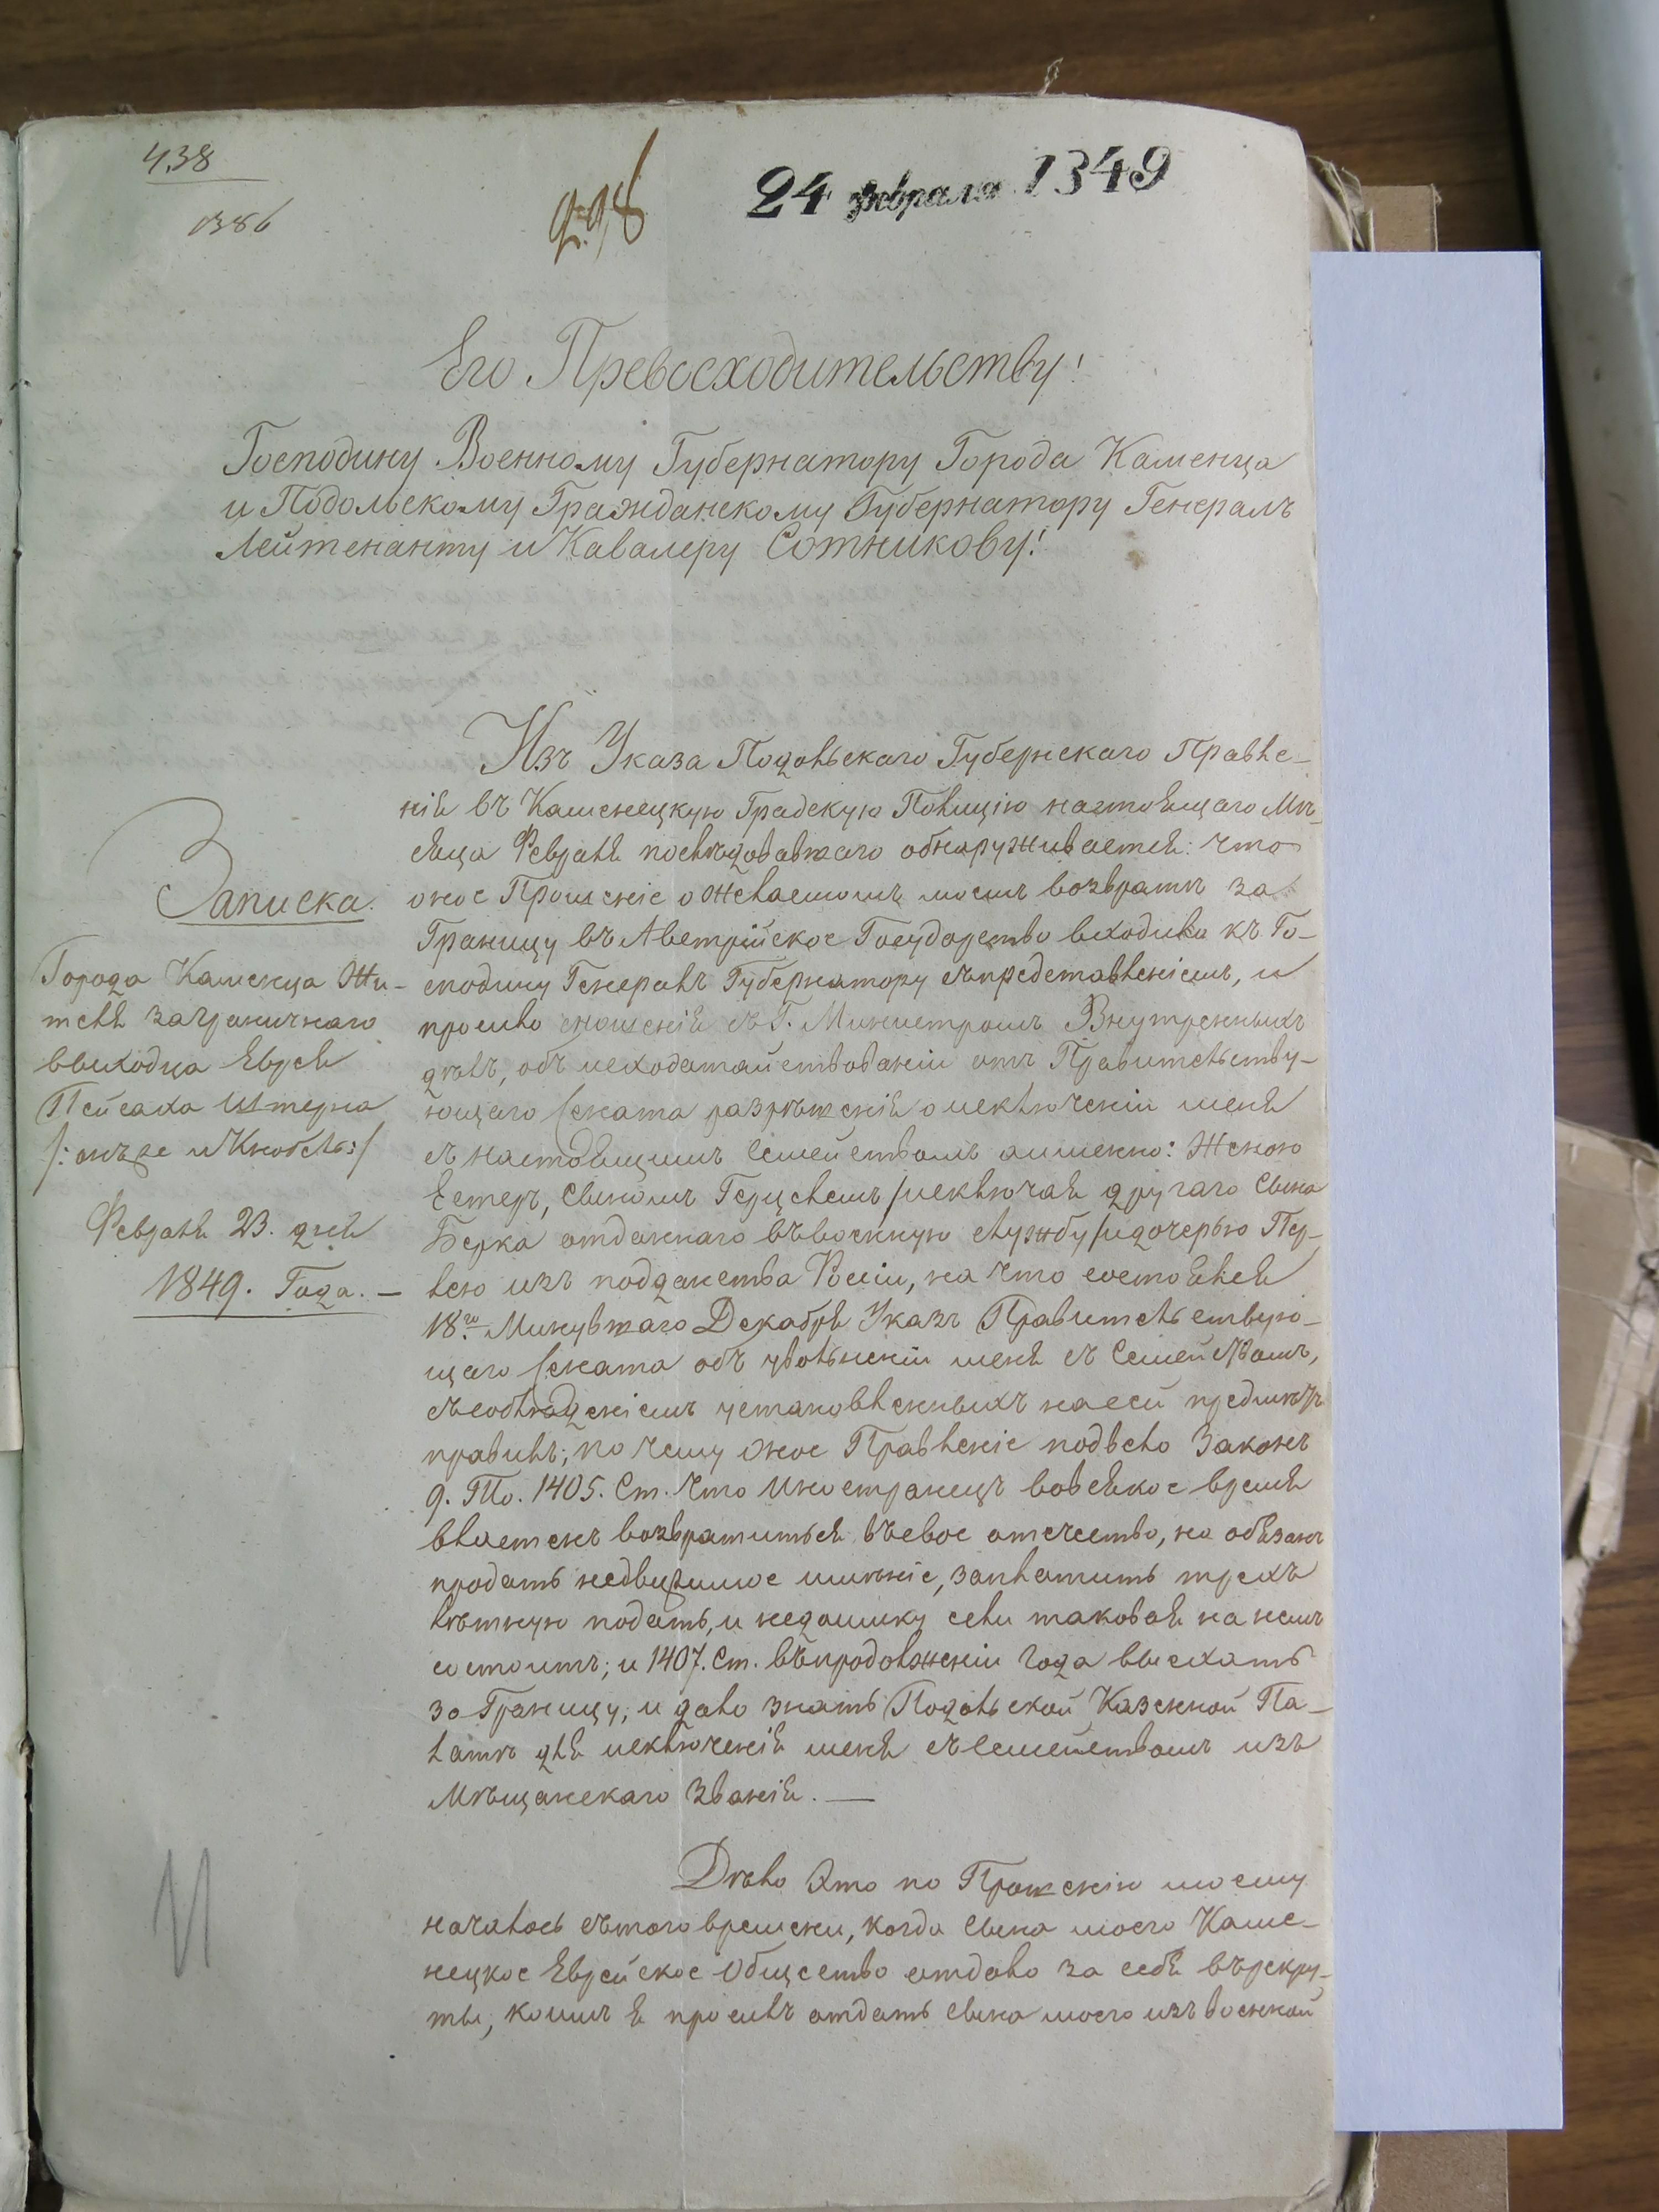 438
1386
24 февраля 1849
Его Превосходительству!
Господину Военному Губернатору Города Каменца
и Подольскому Гражданскому Губернатору Генералъ
Лейтенанту и Кавалеру Сотникову!
Записка.
Города Каменца Жи-
теля заграничнаго
выходца Еврея
Пейсаха Штерна
/: онъ же и Кнобель :/
Февраля 23. дня
1849. Года. —
Изъ Указа Подольскаго Губернскаго Правле-
нія въ Каменецкую Градскую Полицію настоящаго Мѣ-
сяца Февраля послѣдовавшаго обнаруживается: что
оное Прошеніе о желаемомъ моемъ возвратѣ за
Границу въ Австрійское Государство входило къ Го-
сподину Генералъ Губернатору съ представленіемъ, и
просило сношенія съ Г. Министромъ Внутренныхъ
дѣлъ, объ исходатайствованіи отъ Правительству-
ющаго Сената разрѣшенія о исключеніи меня
съ настоящимъ Семействомъ аименно: Женою
Естеръ, Сыномъ Герцелемъ /исключая другаго Сына
Берка отданнаго въ военную службу/ и дочерью Пер-
лею изъ подданства Россіи, на что состоялся
18го Минувшаго Декабря Указъ Правительствую-
щаго Сената объ увольненіи меня съ Семействомъ,
съ соблюденіемъ установленныхъ на сей предмѣтъ
правилъ; по чему оное Правленіе подвело Законъ
9. То. 1405. Ст. что Иностранецъ во всякое время
властенъ возвратиться въ свое отечество, но обязанъ
продать недвижимое имѣніе, заплатить трехъ
лѣтнюю подать, и недоимку если таковая на немъ
состоитъ; и 1407. Ст. въ продолженіи Года выехать
за Границу, и дало знать Подольской Казенной Па-
латѣ для исключенія меня съ Семействомъ изъ
Мѣщанскаго Званія. —
Дѣло Это по Прошенію моему
началось съ того времени, когда Сына моего Каме-
нецкое Еврейское Общество отдало за себя въ рекру-
ты, коимъ я просилъ отдать Сына моего изъ военной